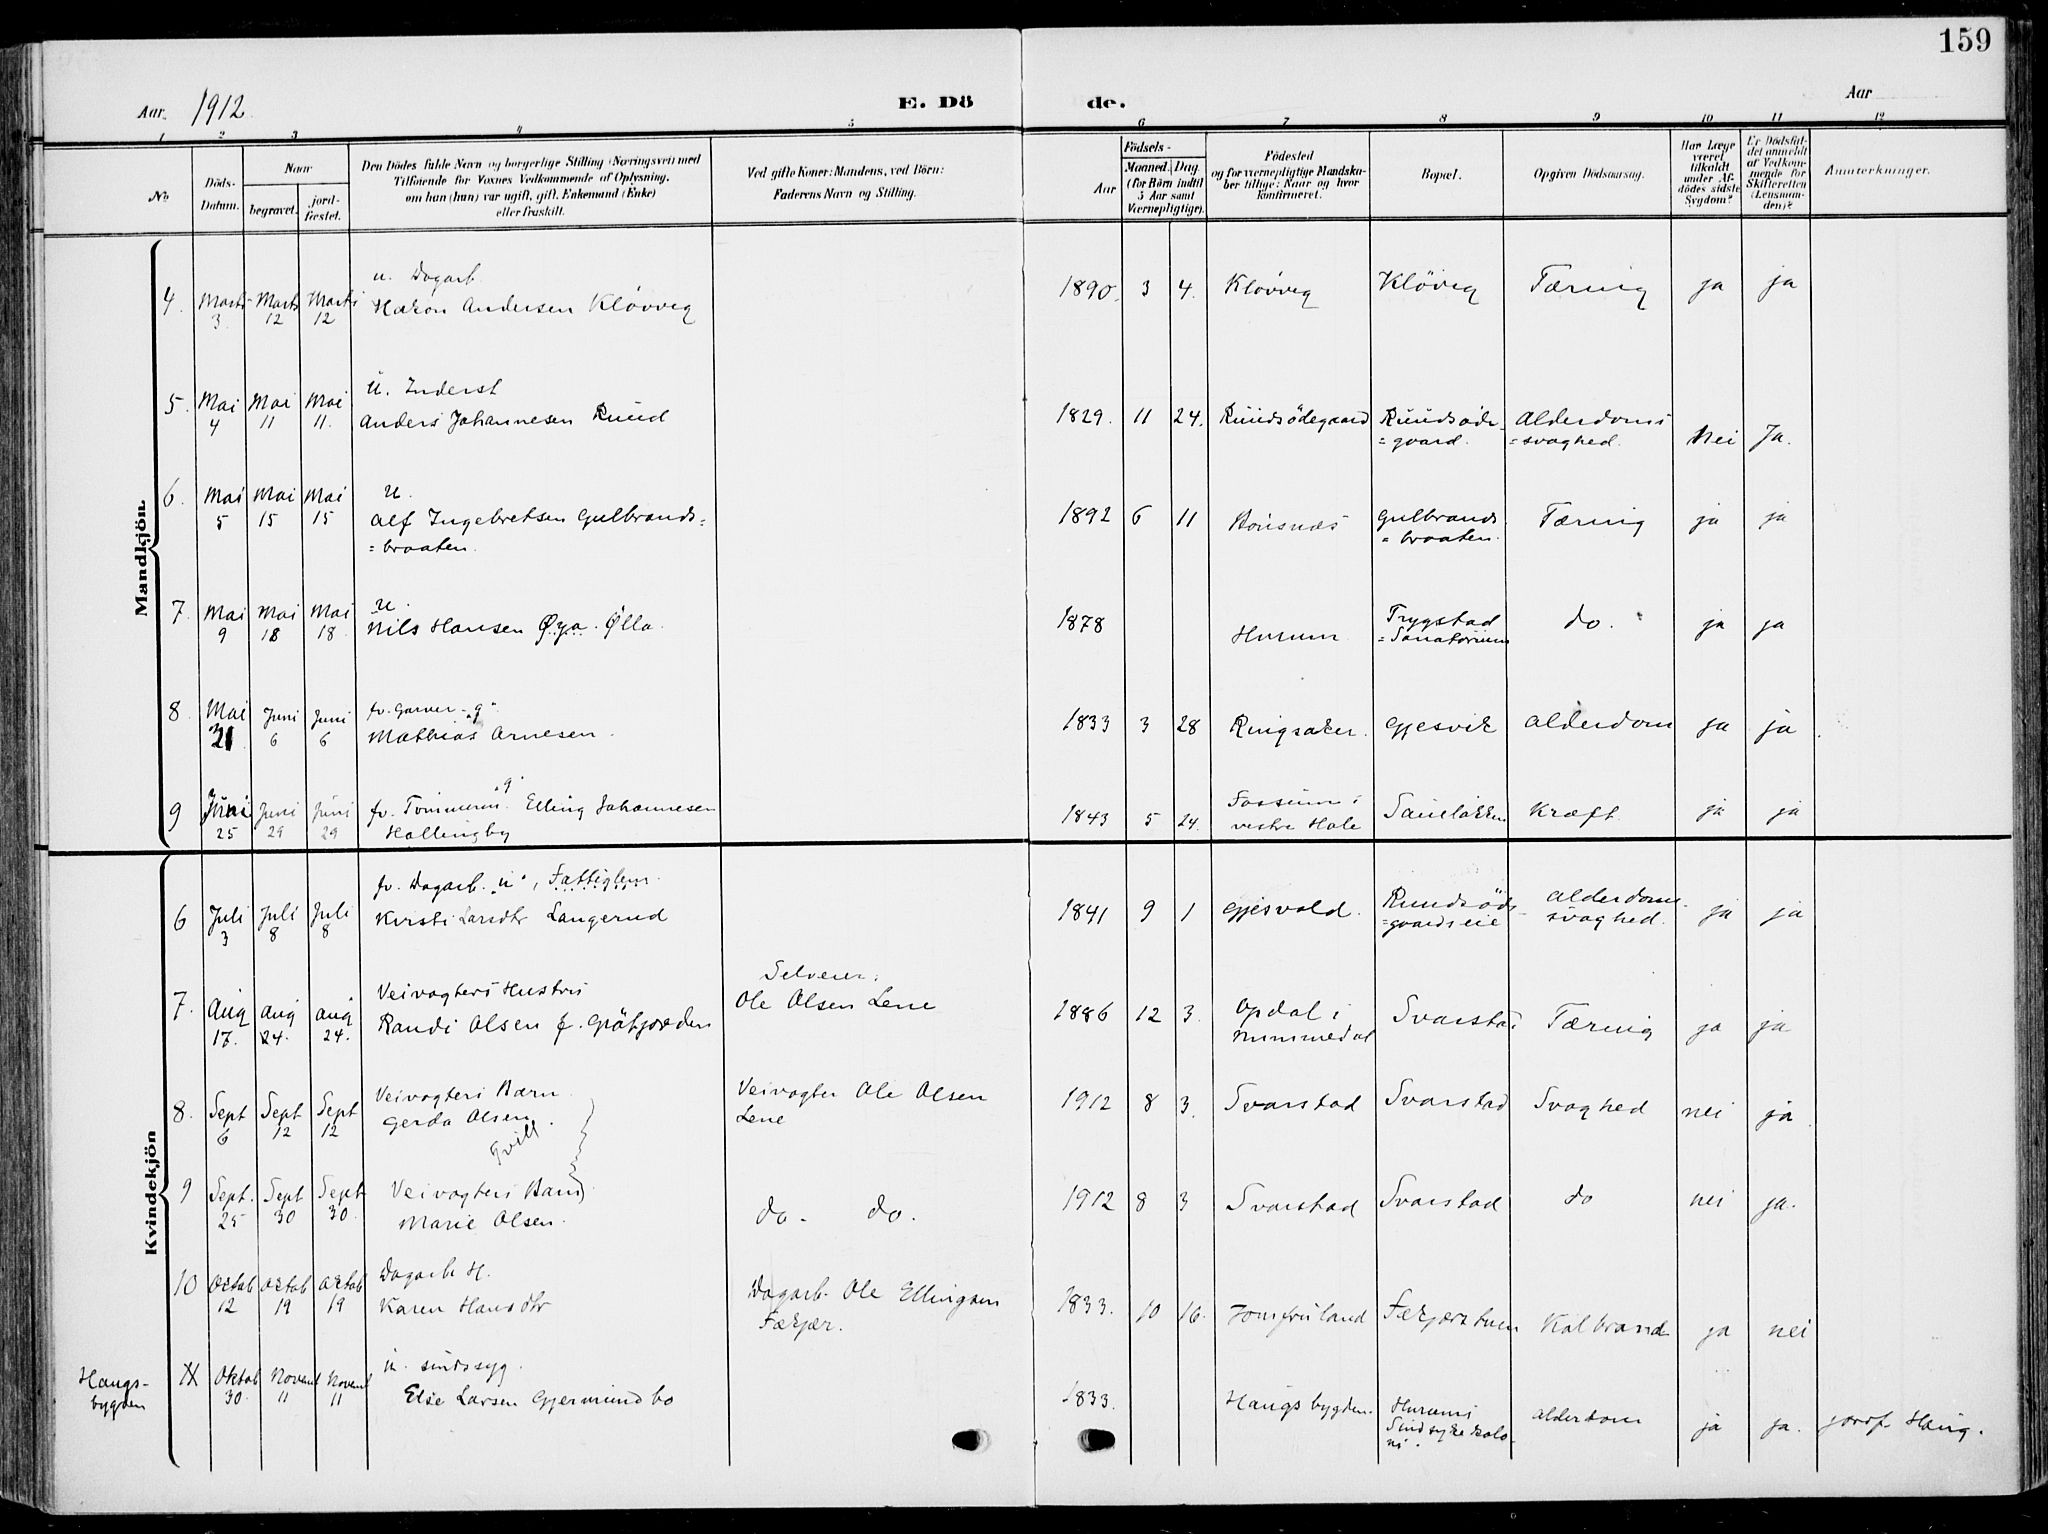 159
Aar 1912
E. Dö
de.
Aar
1 2 3 4 5 6 7 8 9 10 11 12
No
Döds-
Datum.
Naar
begravet.
jord-
fæstet.
Den Dödes fulde Navn og borgerlige Stilling (Næringsvei) med
Tilföiende for Voxnes Vedkommende af Oplysning,
om han (hun) var ugift, gift, Enkemand (Enke)
eller fraskilt.
Ved gifte Koner: Mandens, ved Börn:
Faderens Navn og Stilling.
Födsels-
Aar
Maaned. Dag.
(for Börn indtil
5 Aar samt
Værnepligtige).
Födested
og for værnepligtige Mandska-
ber tillige: Naar og hvor
konfirmeret.
Bopæl.
Opgiven Dödsaarsag.
Har Læge
været
tilkaldt
under Af-
dödes sidste
Sygdom?
Er Dödsfal-
det anmeldt
af Vedkom-
mende for
Skifteretten
(Lensman-
den)?
Anmerkninger.
Mandkjön.
4. Marts 3. Marts 12 Marts 12
u. Dagarb.
Hakon Andersen Kløvvig
1890. 3 4. Kløvvig Kløvig Tæring ja ja
5. Mai 4 Mai 11 Mai 11.
u. Inderst
Anders Johannesen Ruud
1829. 11 24. Ruudsødegaard Ruudsøde-
=gaard. Alderdoms
=svaghed. Nei Ja.
6. Mai 5 Mai 15 Mai 15
u.
Alf Ingebretsen Gulbrands=
=braaten.
1892 6 11 Bønsnæs Gulbrands
=braaten. Tæring ja ja
7. Mai 9 Mai 18 Mai 18
u.
Nils Hansen Øya. Ølla.
1878 Hurum Trygstad
=Sanatorium do. ja ja
8. Mai 21 Juni 6 Juni 6
fv. Garver - "g".
Mathias Arnesen.
1833 3 28 Ringsaker. Gjesvik Alderdom ja ja
9 Juni 25 Juni 29 Juni 29
fv. Tømmerm. "g" Elling Johannesen
Hallingby
1843 5 24. Fossum i
vestre Hole Saueløkken Kræft. ja ja
Kvindekjön
6 Juli 3 Juli 8 Juli 8
fv. Dagarb. "u", Fattiglem.
Kirsti Larsdtr Langerud
1841 9 1 Gjesvold. Ruudsøde-
=gaardseie Alderdoms-
svaghed. ja ja
7. Aug 17. Aug 24. Aug 24.
Veivogters Hustru
Randi Olsen f. Gråfjorden
Selveier:
Ole Olsen Lene
1886 12 3. Opdal i
Nummedal Svarstad Tæring ja ja
8. Sept 6 Sept 12 Sept 12
Veivogters Barn
Gerda Olsen.
Tvill
Veivogter Ole Olsen
Lene
1912 8 3. Svarstad Svarstad Svaghed nei ja
9 Sept. 25 Sept 30 Sept 30.
Veivogters Barn
Marie Olsen.
do. do.
1912 8 3 Svarstad Svarstad do nei ja.
10 Octob 12 Octob 19 Octob 19
Dagarb H.
Karen Hansdtr
Dagarb. Ole Ellingsen
Fækjær.
1833. 10 16. Jomfruland Fækjærstuen Kolbrand ja nei
Haugs-
bygden
11 Oktob 30. Novemb 11 Novemb 11
u. sindssyg.
Else Larsen Gjermundbo
1833. Haugsbygden. Hurums
Sindsykekolo-
ni. Alderdom ja ja. jordf. Haug.